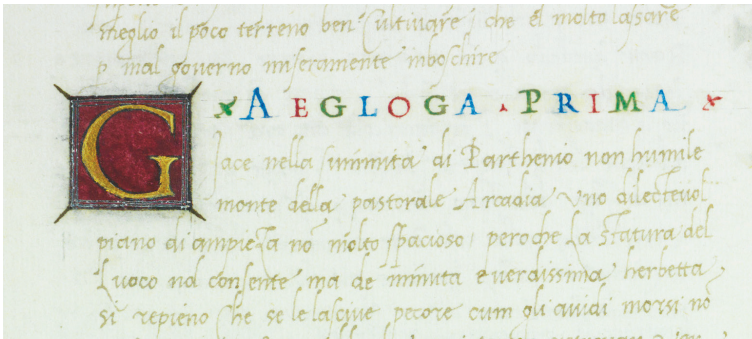 meglio il poco terreno ben' Cultiuare, che el molto lassare
p mal governo miseramente inboschire
AEGLOGA · PRIMA
Giace nella summita di Parthenio non humile
monte della pastorale Arcadia Uno dilecteuol
piano di ampieza no molto spacioso, peroche la statura del
Luoco nol consente ma de minuta e verdissima herbetta
si repieno Che se le lascive pecore cum gli auidi morsi no